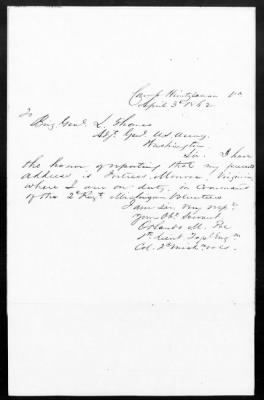 Camp Winfield Scott Va
April 3d 1862
To
Brig Genl. L. Thomas
Adjt. Genl. U.S. Army.
Washington.
Sir. I have
the honor of reporting that my present
address is Fortress Monroe, Virginia
where I am on duty, in command
of the 2d Regt. Michigan Volunteers
I am Sir, Very resp.
Your Obt. Servant
Orlando M. Poe
1st Lieut. Topl Engrs
Col. 2d Mich. Vols.